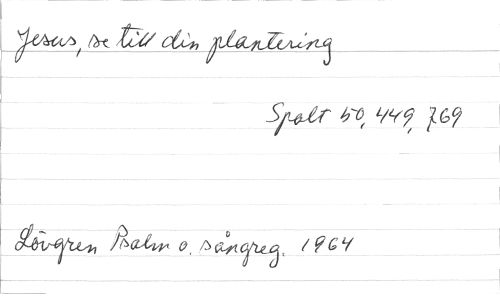 Jesus, se till din plantering
Spalt 50, 449, 769
Lövgren Psalm o. sångreg. 1964